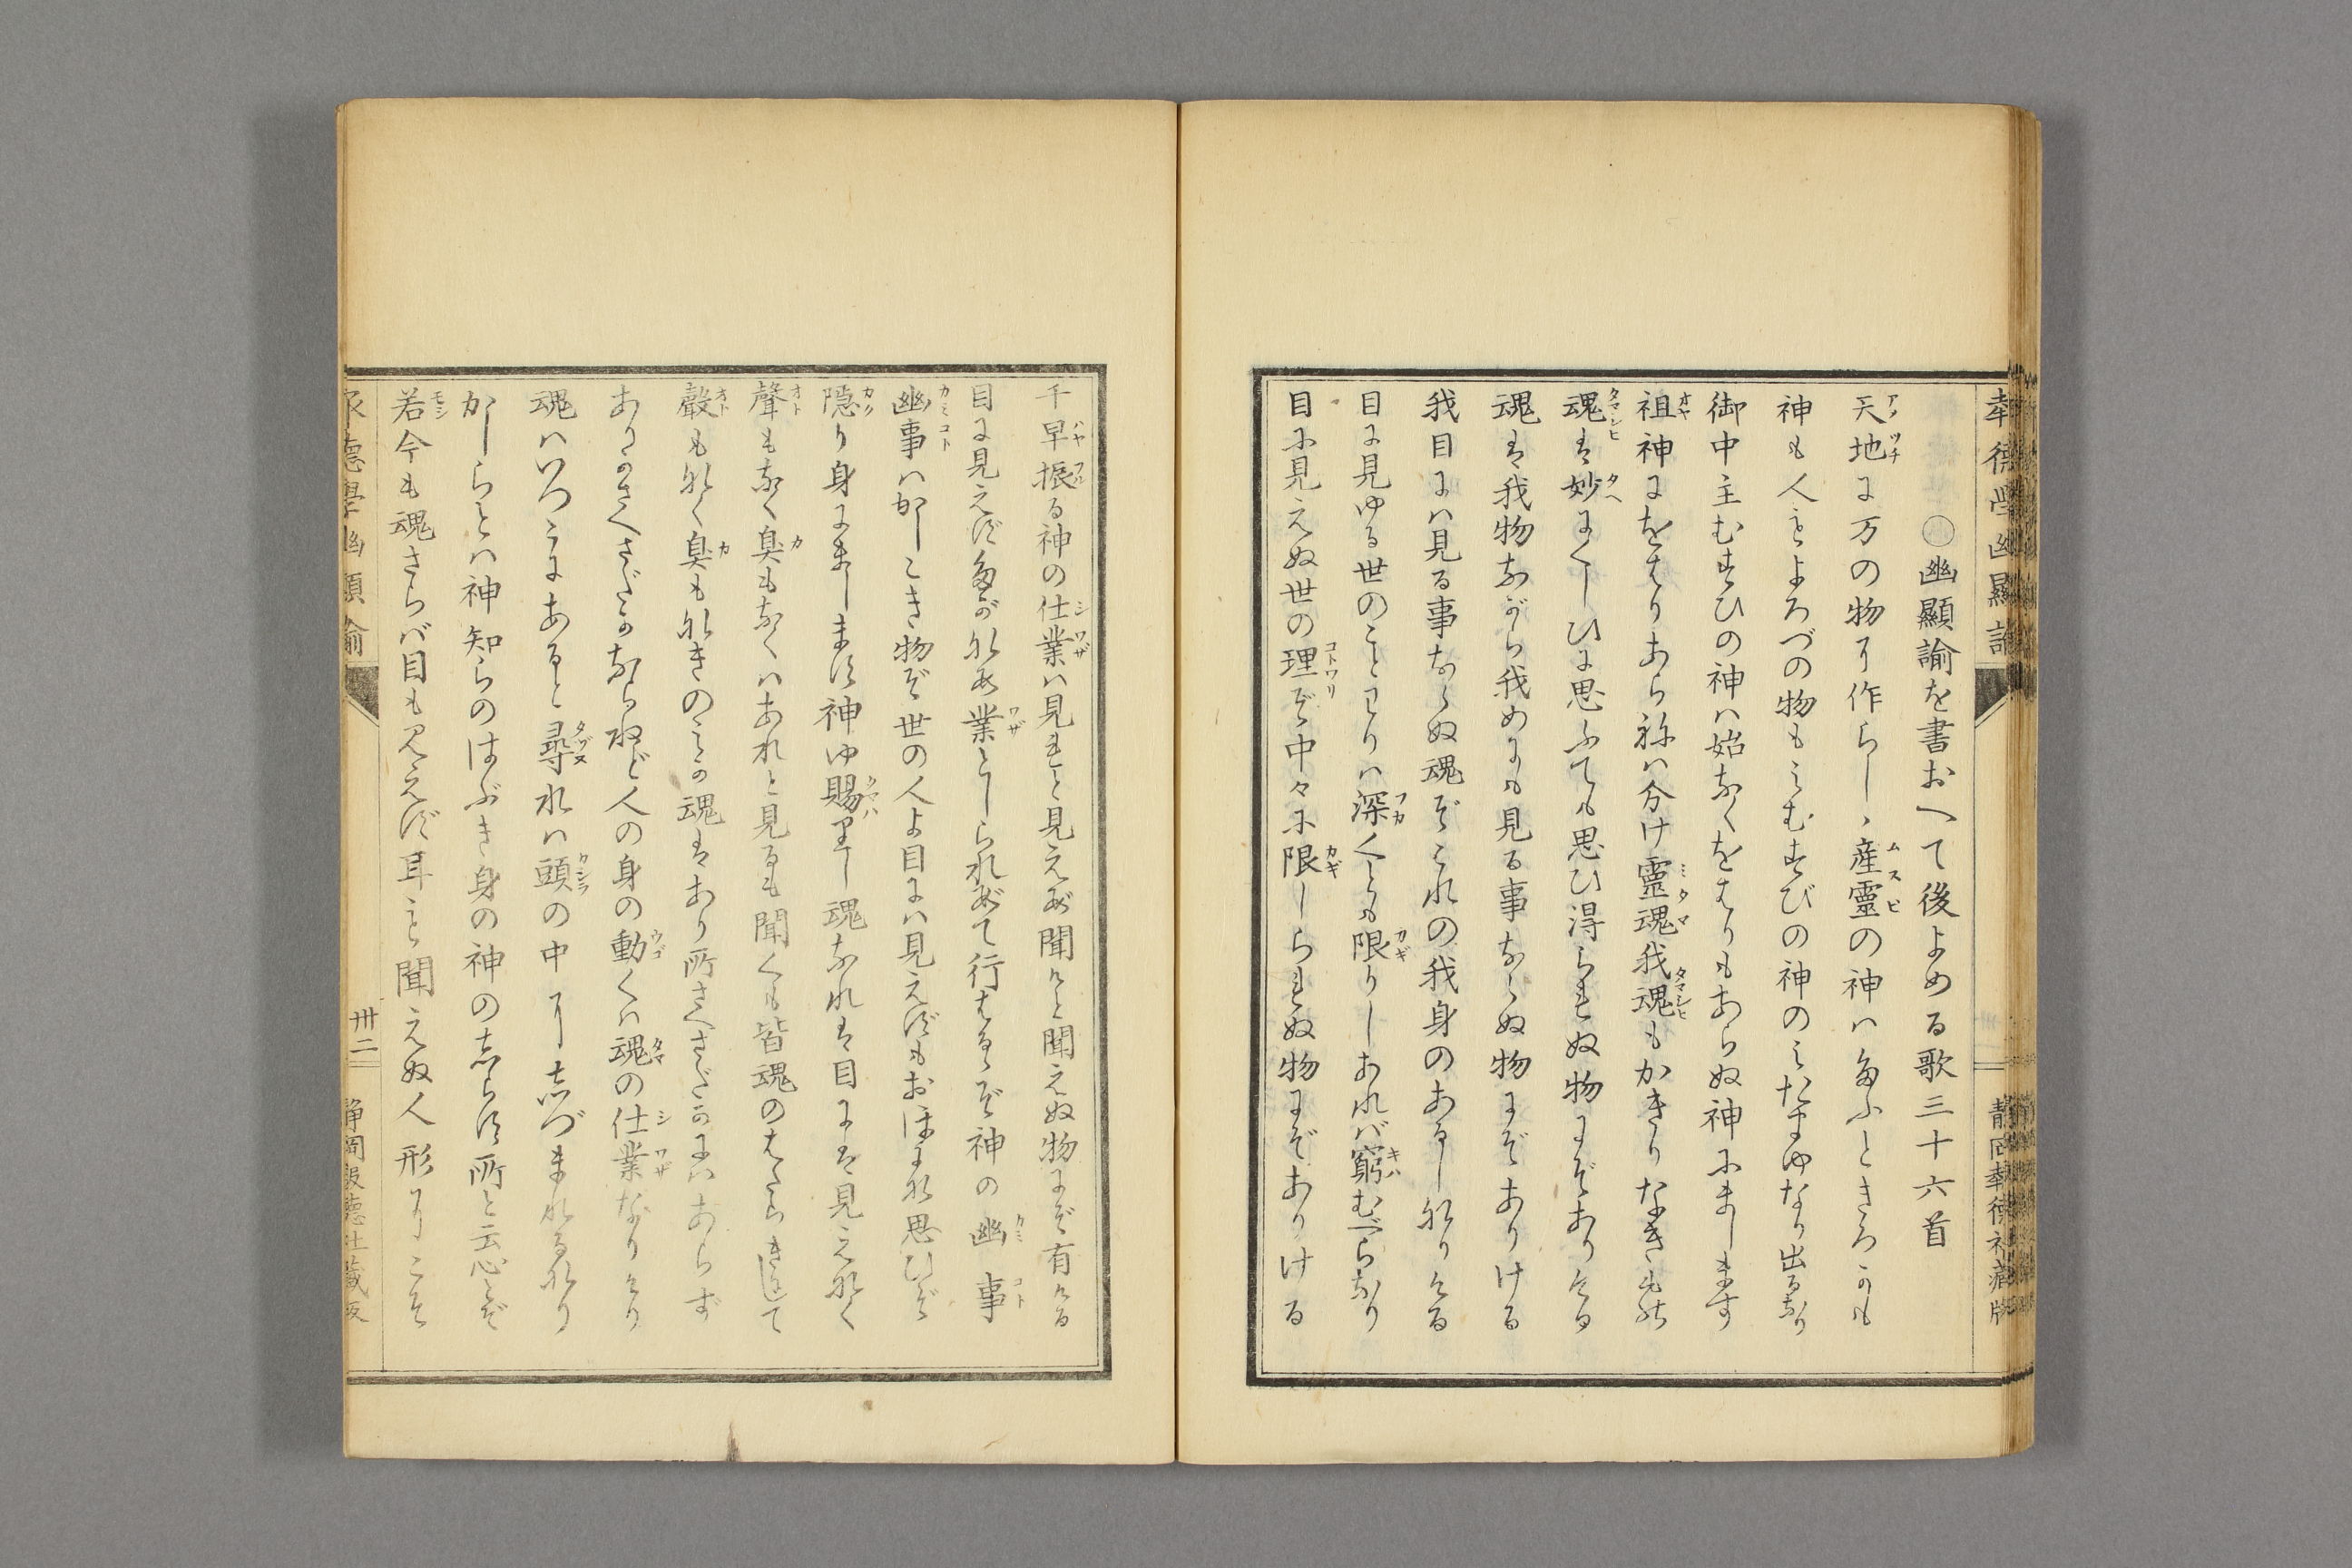 〇幽顯諭を書おへて後よめる歌三十六首
天地に万の物を作らしゝ産靈の神ハ多ふときろかも
神も人もよろづの物もみむすびの神のみたまゆなり出るなり
御中主むすひの神ハ始なくをはりもあらぬ神にまします
祖神にをはりあら祢ハ分け靈魂我魂もかきりなきもの
魂は妙にくしひに思ふても思ひ得られぬ物にぞありける
魂は我物ながら我めにも見る事ならぬ物にぞありける
我目にハ見る事ならぬ魂ぞこれの我身のあるしなりける
目に見ゆる世のことわりハ深くとも限りしあれバ窮むべらなり
目に見えぬ世の理ぞ中々に限しられぬ物にぞありける
千早振る神の仕業ハ見れと見えず聞けと聞えぬ物にぞ有ける
目に見えずながなす業としられずて行はるゝぞ神の幽事
幽事ハかしこき物ぞ世の人よ目にハ見えずもおほよな思ひそ
隠り身にまします神ゆ賜はりし魂なれは目には見えなく
聲もなく臭もなくハあれと見るも聞くも皆魂のはたらきにして
聲もなく臭もなきのみか魂はあり所さへさだかにハあらず
ありかさへさだかならねど人の身の動くハ魂の仕業なりけり
魂ハいつこにあると尋れハ頭の中にしづまれるなり
かしらとハ神知らのはぶき身の神のしらす所と云心ぞ
若今も魂さらバ目も見えず耳も聞えぬ人形にこそ
卅二
静岡報徳社藏版